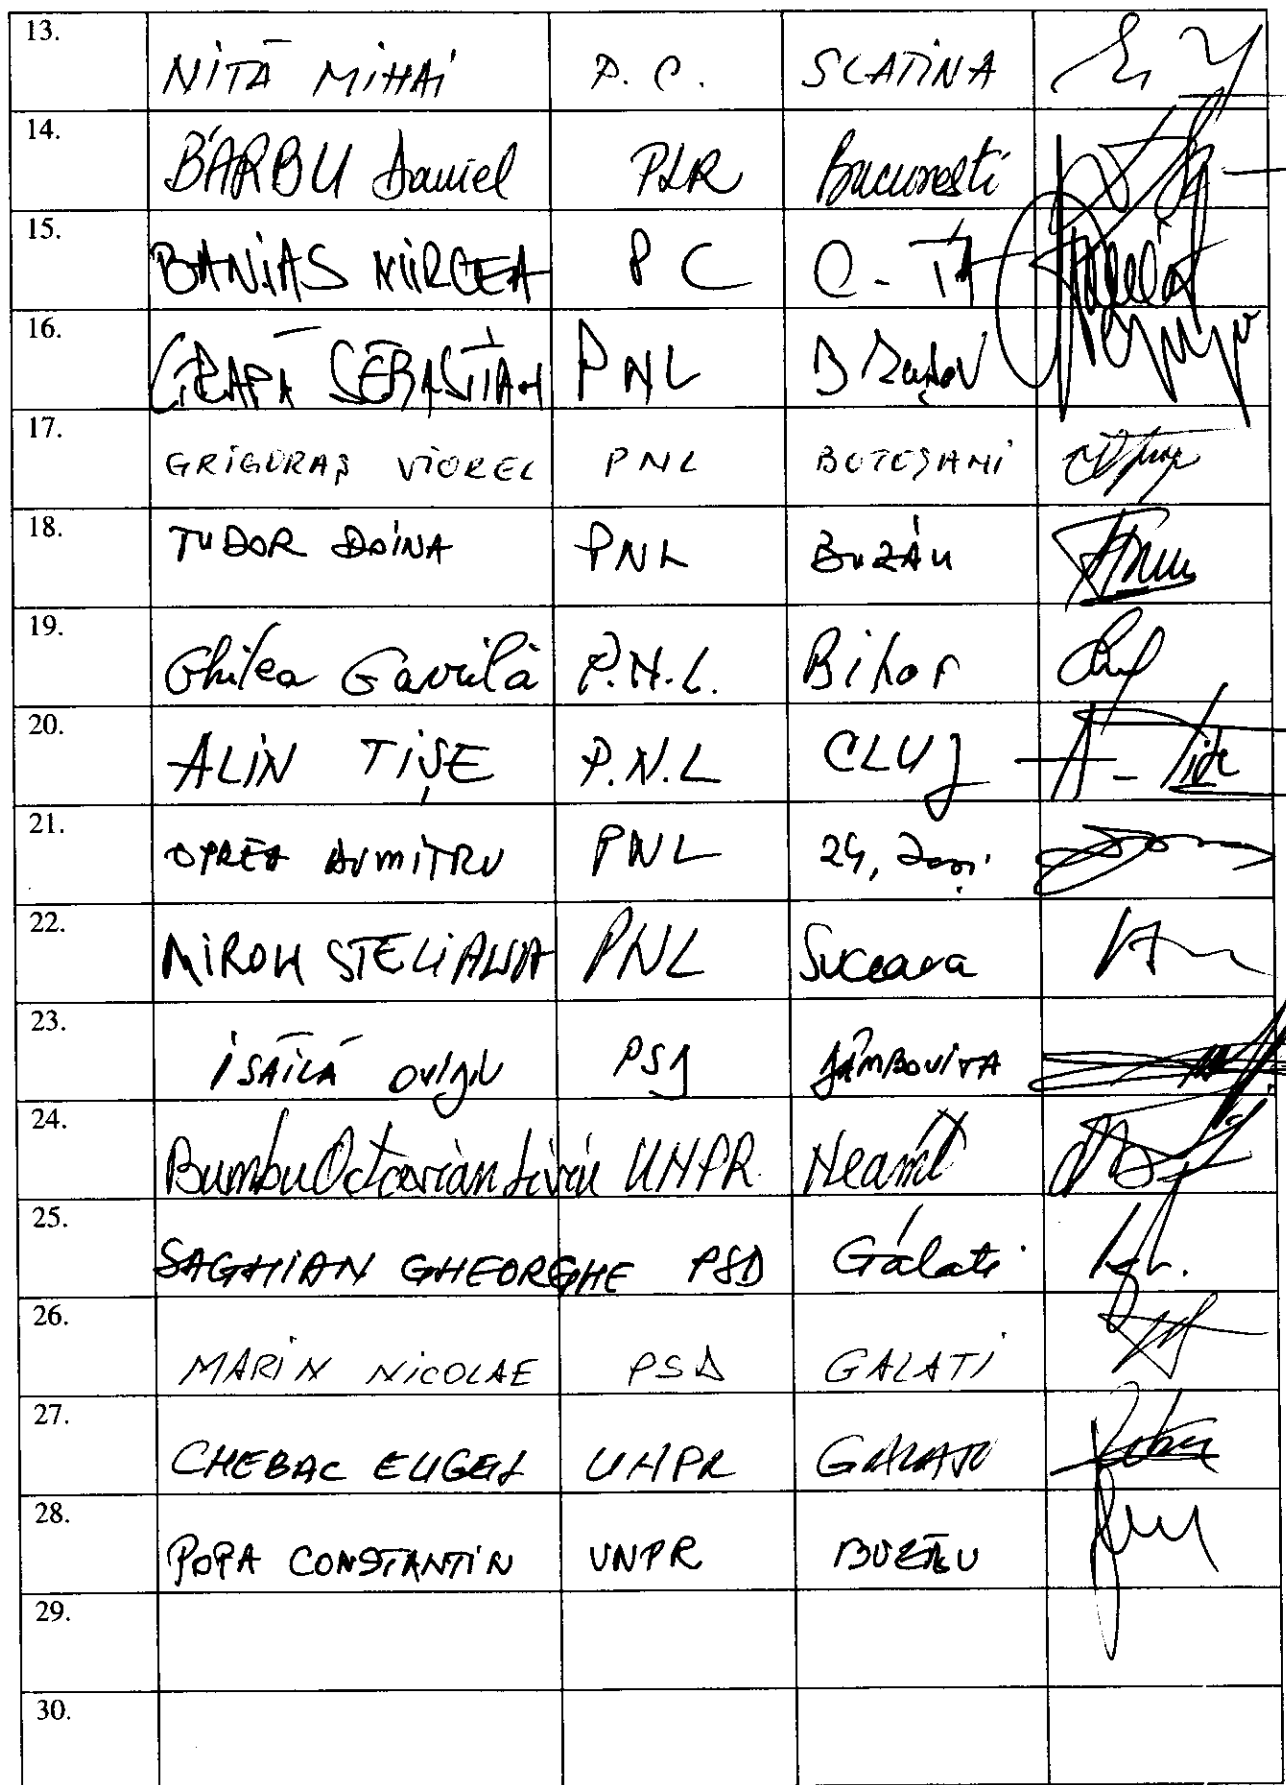 13. NIȚĂ MIHAI P.C. SLATINA
14. BARBU Daniel PLR Bucuresti
15. BANIAS MIRCEA PC C-TA
16. CRAPĂ SEBASTIAN PNL Brașov
17. GRIGORAȘ VIOREL PNL BOTOȘANI
18. TUDOR DOINA PNL BUZĂU
19. Ghilea Gavrilă P.N.L. Bihor
20. ALIN TIȘE P.N.L CLUJ
21. OPREA DUMITRU PNL 24, Iași
22. MIRON STELIANA PNL Suceava
23. ISĂILĂ OVIDIU PSD DÂMBOVITA
24. Bumbu Octavian Liviu UNPR Neamt
25. SAGHIAN GHEORGHE PSD Galati
26. MARIN NICOLAE PSD GALATI
27. CHEBAC EUGEN UNPR GALATI
28. POPA CONSTANTIN UNPR BUZĂU
29.
30.